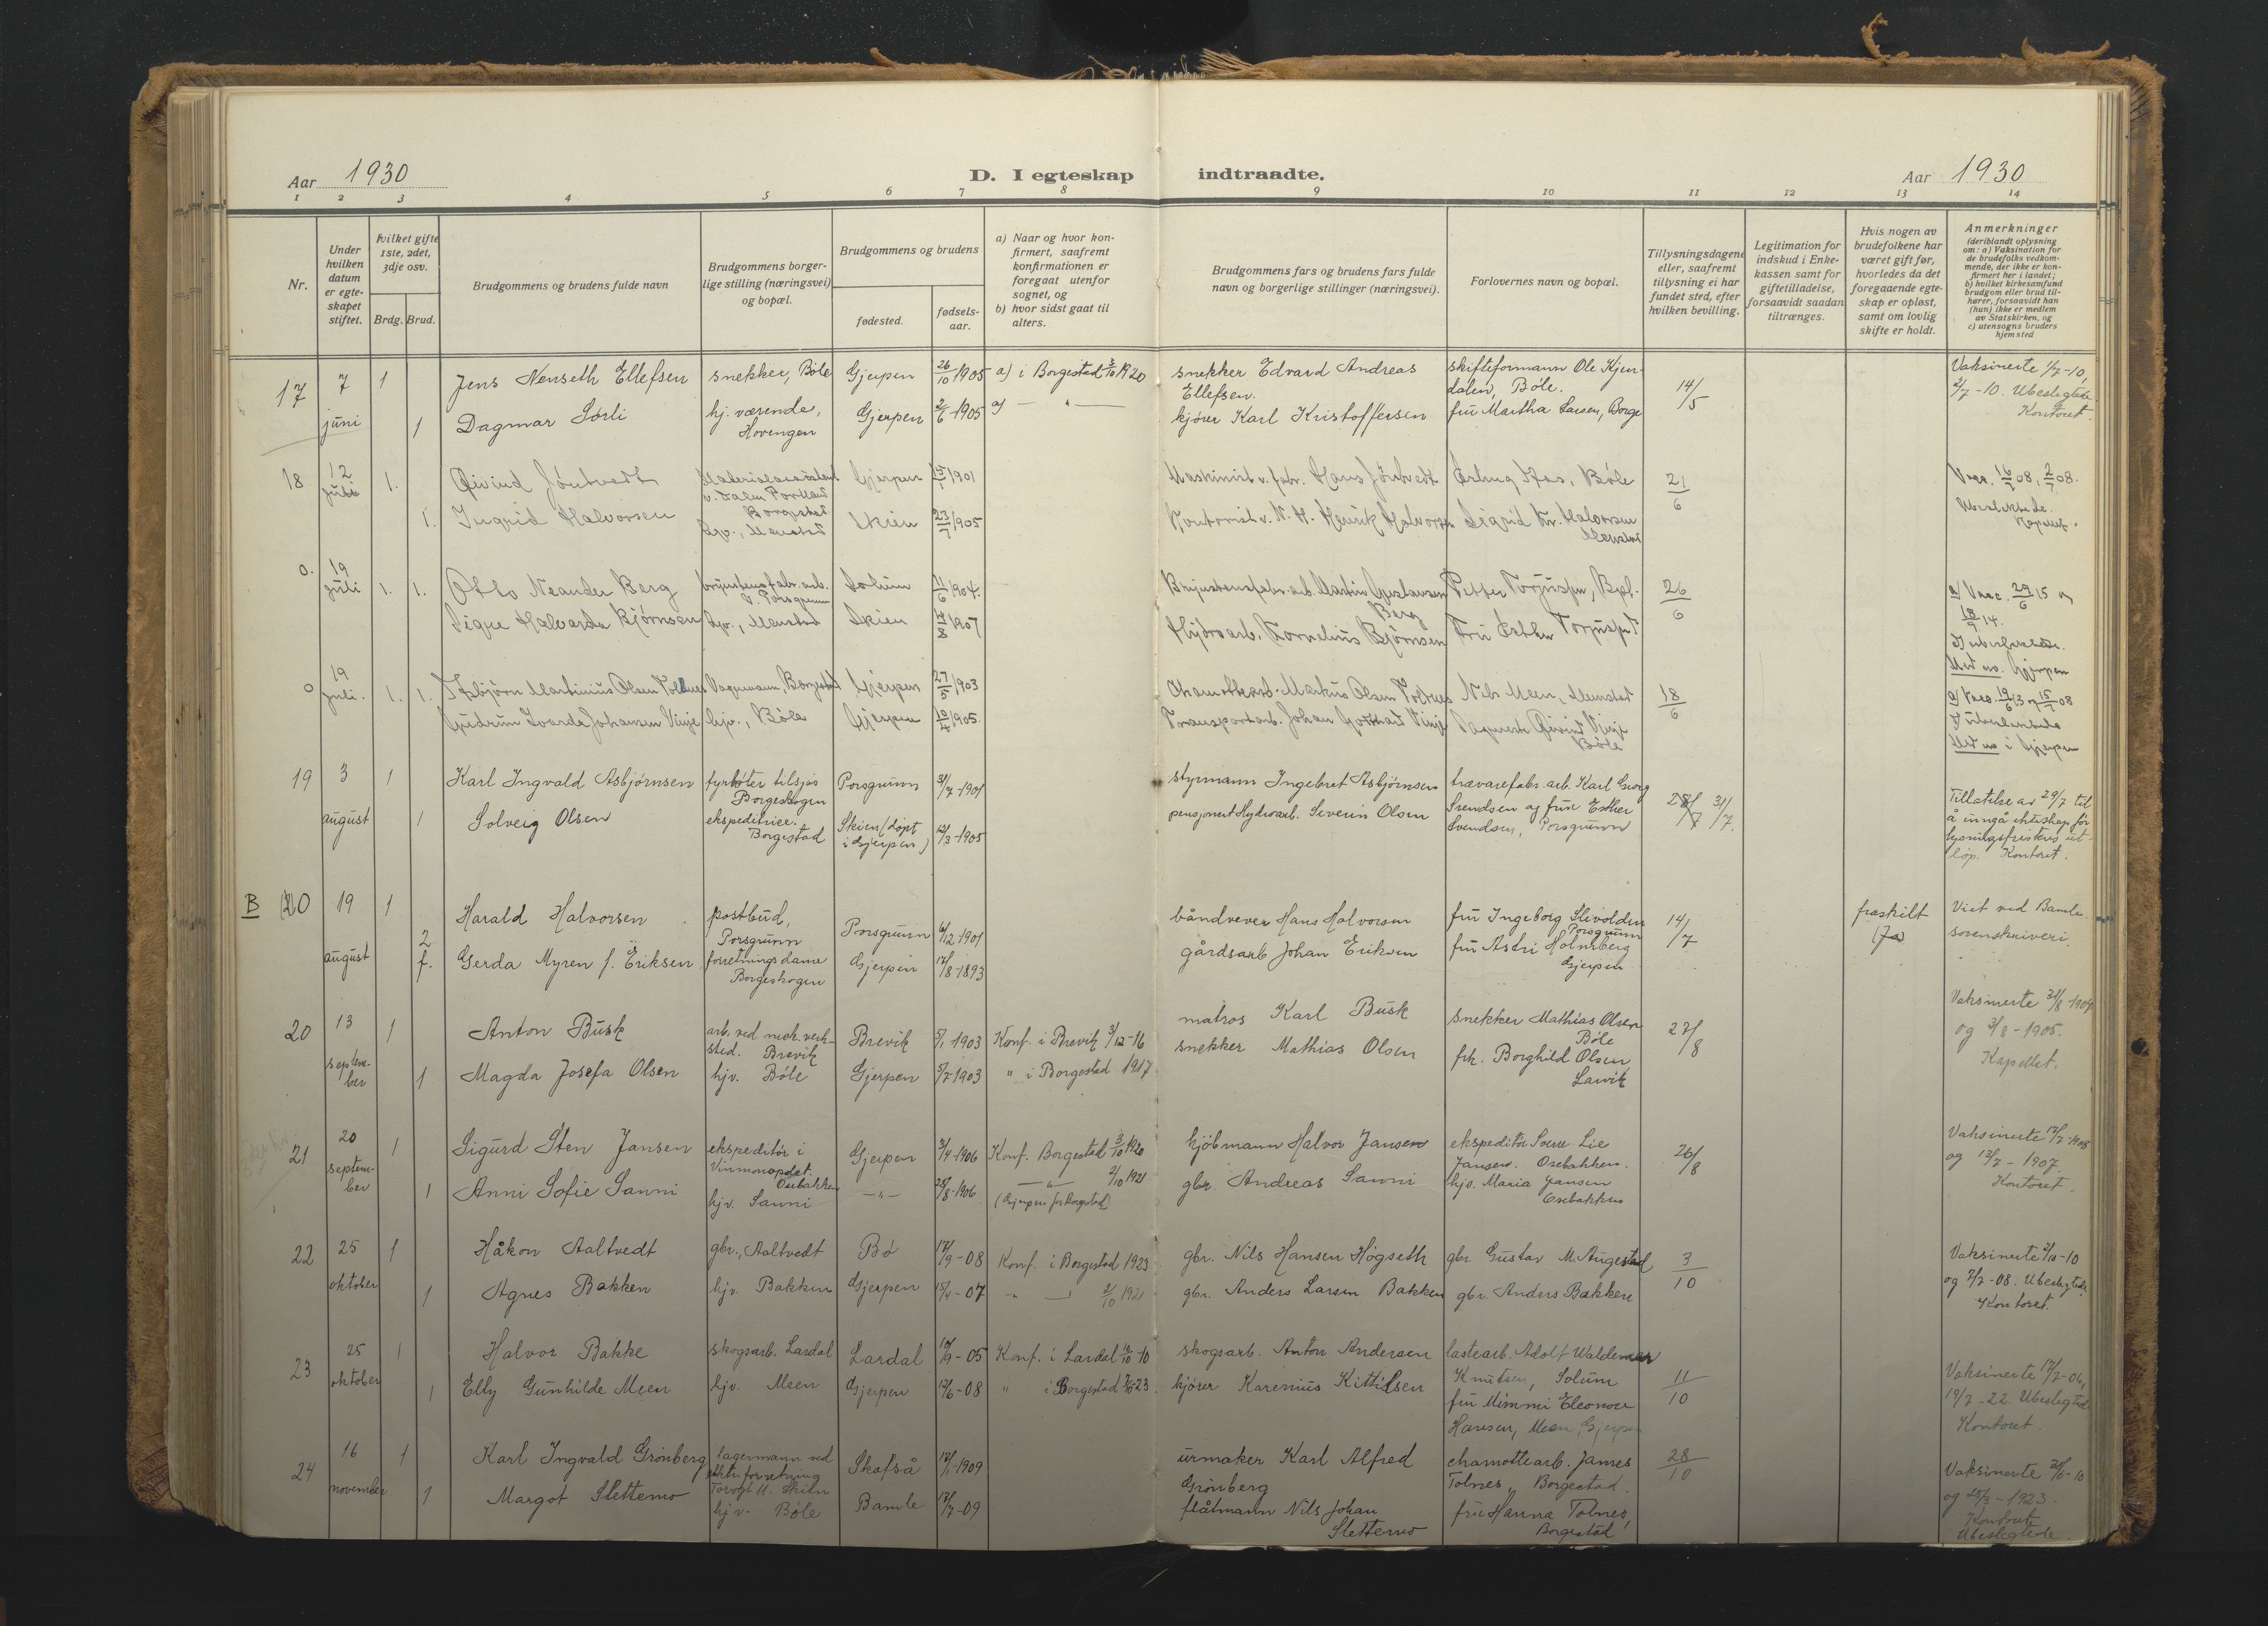 Aar 1930
D. I egteskap indtraadte.
Aar 1930
1 2 3 4 5 6 7 8 9 10 11 12 13 14
Nr.
Under hvilken datum er egteskapet stiftet.
Hvilket gifte 1ste, 2det, 3dje osv.
Brdg. Brud.
Brudgommens og brudens fulde navn
Brudgommens borgerlige stilling (næringsvei) og bopæl.
Brudgommens og brudens
fødested.
fødselsaar.
a) Naar og hvor konfirmert, saafremt konfirmationen er foregaat utenfor sognet, og
b) hvor sidst gaat til alters.
Brudgommens fars og brudens fars fulde navn og borgerlige stillinger (næringsvei).
Forlovernes navn og bopæl.
Tillysningsdagene eller, saafremt tillysning ei har fundet sted, efter hvilken bevilling.
Legitimation for indskud i Enkekassen samt for giftetilladelse, forsaavidt saadan tiltrænges.
Hvis nogen av brudefolkene har været gift før, hvorledes da det foregaaende egteskap er opløst, samt om lovlig skifte er holdt.
Anmerkninger
(deriblandt oplysning om: a) Vaksination for de brudefolks vedkommende, der ikke er konfirmert her i landet; b) hvilket kirkesamfund brudgom eller brud tilhører, forsaavidt han (hun) ikke er medlem av Statskirken, og c) utensogns bruders hjemsted
17 7 juni 1 Jens Nenseth Ellefsen snekker, Bøle Gjerpen 26/10 1905 a) i Borgestad 3/10 1920 snekker Edvard Andreas Ellefsen. skifteformann Ole Kjendalen, Bøle. 14/5 Vaksinerte 1/7-10, 2/7-10. Ubeslegtede Kontoret.
1 Dagmar Sørli hj. værende, Hovengen Gjerpen 2/6 1905 a) — " — kjører Karl Kristoffersen fru Martha Larsen, Borge
18 12 juli 1. Øivind Jøntvedt Borgestad Gjerpen 15/1 1901 Maskinist v. fabr. Hans Jøntvedt Erling Aas, Bøle 21/6 Vacc. 16/7 08, 2/7 08. Ubeslektede. Kapellet.
1. Ingrid Halvorsen hjv., Menstad Skien 23/7 1905 Kontorist v. N. H. Henrik Halvorsen Sigrid Kr. Halvorsen Menstad
o. 19 juli 1. 1. Otto Neander Berg brynstensfabr. arb. v. Porsgrunn Solum 11/6 1904. Brynstensfabr. arb. Martin Gustavsen Berg Petter Torjusen, Bpl. 26/6 a) Vacc. 29/6 15 og 18/9 14.
Signe Halvarda Bjørnsen hjv., Menstad Skien 4/8 1907 Hydroarb. Kornelius Bjørnsen Fru Esther Gjerpen
o 19 juli. 1. 1. Asbjørn Martinius Olsen Vognmann, Borgestad Gjerpen 27/5 1903 Chamottearb. Markus Olsen Nils Meen, Menstad 18/6 a) Vacc. 19/6 13 og 15/7 08
Gudrun Ivarda Johansen Vinje hjv., Bøle Gjerpen 10/4 1905. Transportarb. Johan Vinje Øivind Vinje Bøle i Gjerpen
19 3 august 1 Karl Ingvald Asbjørnsen fyrbøter tilsjøs Borgeskogen Porsgrunn 31/7-1901 styrmann Ingebret Asbjørnsen trævarefabr. arb. Karl Georg Svendsen og frue Esther Svendsen, Porsgrunn 31/7. Tillatelse av 29/7 til å inngå ekteskap før lysningsfristens utløp. Kontoret.
1 Solveig Olsen ekspeditrice. Borgestad Skien (døpt i Gjerpen) 12/3-1905 pensjonert Hydroarb. Severin Olsen
B 20 19 august 1 Harald Halvorsen postbud, Porsgrunn Porsgrunn 6/12-1901 båndvever Hans Halvorsen fru Ingeborg Slivolden Porsgrunn 14/7 fraskilt (Ja) Viet ved Bamble sorenskriveri.
2 f. Gerda Myren f. Eriksen forretningsdame Borgeskogen Gjerpen 17/8-1893 gårdsarb Johan Eriksen fru Astri Holmberg Gjerpen
20 13 september 1 Anton Busk arb. ved mek. verksted. Brevik Brevik 5/1 1903 Konf. i Brevik 3/12-16 matros Karl Busk snekker Mathias Olsen Bøle 27/8 Vaksinerte 31/8-1904 og 3/8-1905. Kapellet.
1 Magda Josefa Olsen hjv. Bøle Gjerpen 5/7-1903 " i Borgestad 1917 snekker Mathias Olsen frk. Borghild Olsen Larvik
21 20 september 1 Sigurd Sten Jansen ekspeditør i Vinmonopolet. Osebakken Gjerpen 3/4-1906 Konf. Borgestad 3/10 1920 kjöbmann Halvor Jansen ekspeditör Sverre Lie Jansen. Osebakken. 26/8 Vaksinerte 17/7-1908 og 12/7-1907. Kontoret.
1 Anni Sofie Sanni hjv. Sanni — " — 28/8-1906 — " — 2/10 1921 (Gjerpen for Borgestad) gbr. Andreas Sanni hjv. Maria Jansen Osebakken
22 25 oktober 1 Håkon Aaltvedt gbr., Aaltvedt Bø 17/9-08 Konf. i Borgestad 1923 gbr. Nils Hansen Høgseth gbr. Gustav M. Augestad 3/10 Vaksinerte 3/10-10 og 7/7-08. Ubeslegtede. Kontoret.
1 Agnes Bakken hjv. Bakken Gjerpen 15/4-07 2/10 1921 gbr. Anders Larsen Bakken gbr. Anders Bakken
23 25 oktober 1 Halvor Bakke skogsarb. Lardal Lardal 19/9-05 Konf. i Lardal 10/10-10 skogsarb. Anton Andersen lastearb. Adolf Waldemar Knutsen, Solum 11/10 Vaksinerte 17/7-06, 19/7-22. Ubeslegtede Kontoret.
1 Elly Gunhilde Meen hjv. Meen Gjerpen 12/6-08 " i Borgestad 7/10-23 kjører Karenius Kittilsen fru Mimmi Eleonore Hansen, Meen, Gjerpen
24 16 november 1 Karl Ingvald Grönberg lagermann ved elektr. forretning Torvgt 11. Skien Skafså 12/1-1909 urmaker Karl Alfred Grönberg chamottearb. James Tolnes, Borgestad. 28/10 Vaksinerte 20/6-10 og 25/3-1923. Kontoret Ubeslegtede.
1 Margot Slettemo hjv. Bøle Bamle 17/7-09 flåtmann Nils Johan Slettemo frue Hanna Tolnes, Borgestad